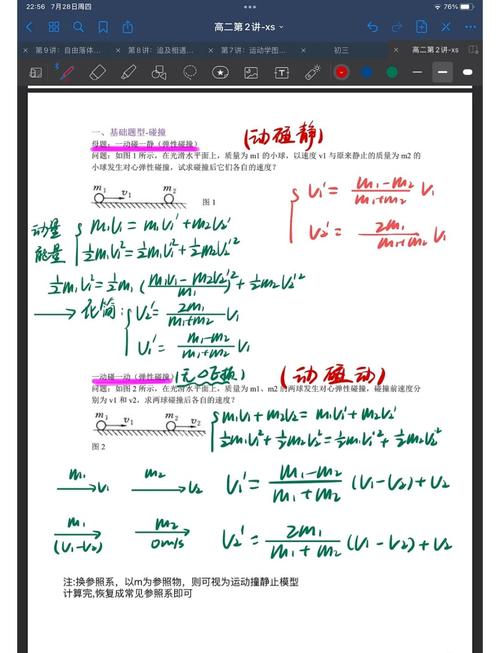 22:56 7月28日周四
76%
高二第2讲-xs
第9讲：自由落体...
第8讲：追及相遇...
第7讲：运动学图...
初三
高二第2讲-xs
一、基础题型-碰撞
母题：一动碰一静（弹性碰撞）
(动碰静)
问题：如图1所示，在光滑水平面上，质量为m1的小球，以速度v1与原来静止的质量为m2的
小球发生对心弹性碰撞，试求碰撞后它们各自的速度？
m₁ v₁ m₂
图1
V₁' = (m₁-m₂)/(m₁+m₂) V₁
V₂' = 2m₁/(m₁+m₂) V₁
动量 m₁V₁ = m₁V₁' + m₂V₂'
能量 ½m₁V₁² = ½m₁V₁'² + ½m₂V₂'²
½m₁V₁² = ½m₁ ((m₁V₁-m₂V₂')/m₁)² + ½m₂V₂'²
→ 化简: V₂' = 2m₁/(m₁+m₂) V₁
V₁' = (m₁-m₂)/(m₁+m₂) V₁
一动碰一动（弹性碰撞）
(动碰动)
问题：如图2所示，在光滑水平面上，质量为m1、m2的两球发生对心弹性碰撞，碰撞前速度分
别为v1和v2，求两球碰撞后各自的速度？
m₁ v₁ m₂ v₂
图2
m₁V₁ + m₂V₂ = m₁V₁' + m₂V₂'
½m₁V₁² + ½m₂V₂² = ½m₁V₁'² + ½m₂V₂'²
m₁ → V₁ m₂ → V₂
V₁' = (m₁-m₂)/(m₁+m₂) (V₁-V₂) + V₂
m₁ → (V₁-V₂) m₂ → 0m/s
V₂' = 2m₁/(m₁+m₂) (V₁-V₂) + V₂
注:换参照系，以m为参照物，则可视为运动撞静止模型
计算完,恢复成常见参照系即可